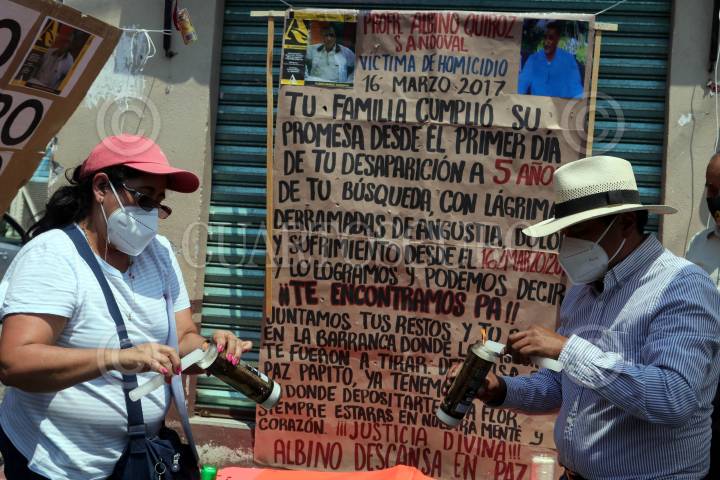 PROFR. ALBINO QUIROZ
SANDOVAL
VÍCTIMA DE HOMICIDIO
16 MARZO 2017
TU FAMILIA CUMPLIÓ SU
PROMESA DESDE EL PRIMER DIA
DE TU DESAPARICIÓN A 5 AÑO
DE TU BÚSQUEDA, CON LÁGRIM
DERRAMADAS DE ANGUSTIA, DOLO
Y SUFRIMIENTO DESDE EL 16/MARZO/20
Y LO LOGRAMOS Y PODEMOS DECIR
¡¡TE ENCONTRAMOS PA!!
JUNTAMOS TUS RESTOS Y YO
EN LA BARRANCA DONDE
TE FUERON A TIRAR.
PAZ PAPITO, YA TENEMO
DONDE DEPOSITARTE FLOR
SIEMPRE ESTARAS EN MENTE Y
CORAZÓN. !!!JUSTICIA DIVINA!!!
ALBINO DESCANSA EN PAZ
RO